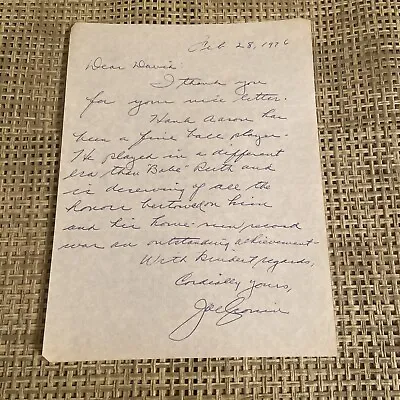 Feb 28, 1976
Dear David
I thank you
for your nice letter.
Hank Aaron has
been a fine ball player.
He played in a different
era than Babe Ruth and
is deserving of all the
honor bestowed on him
and his home-run record
was an outstanding achievement.
With kindest regards,
Cordially yours,
Joe Cronin